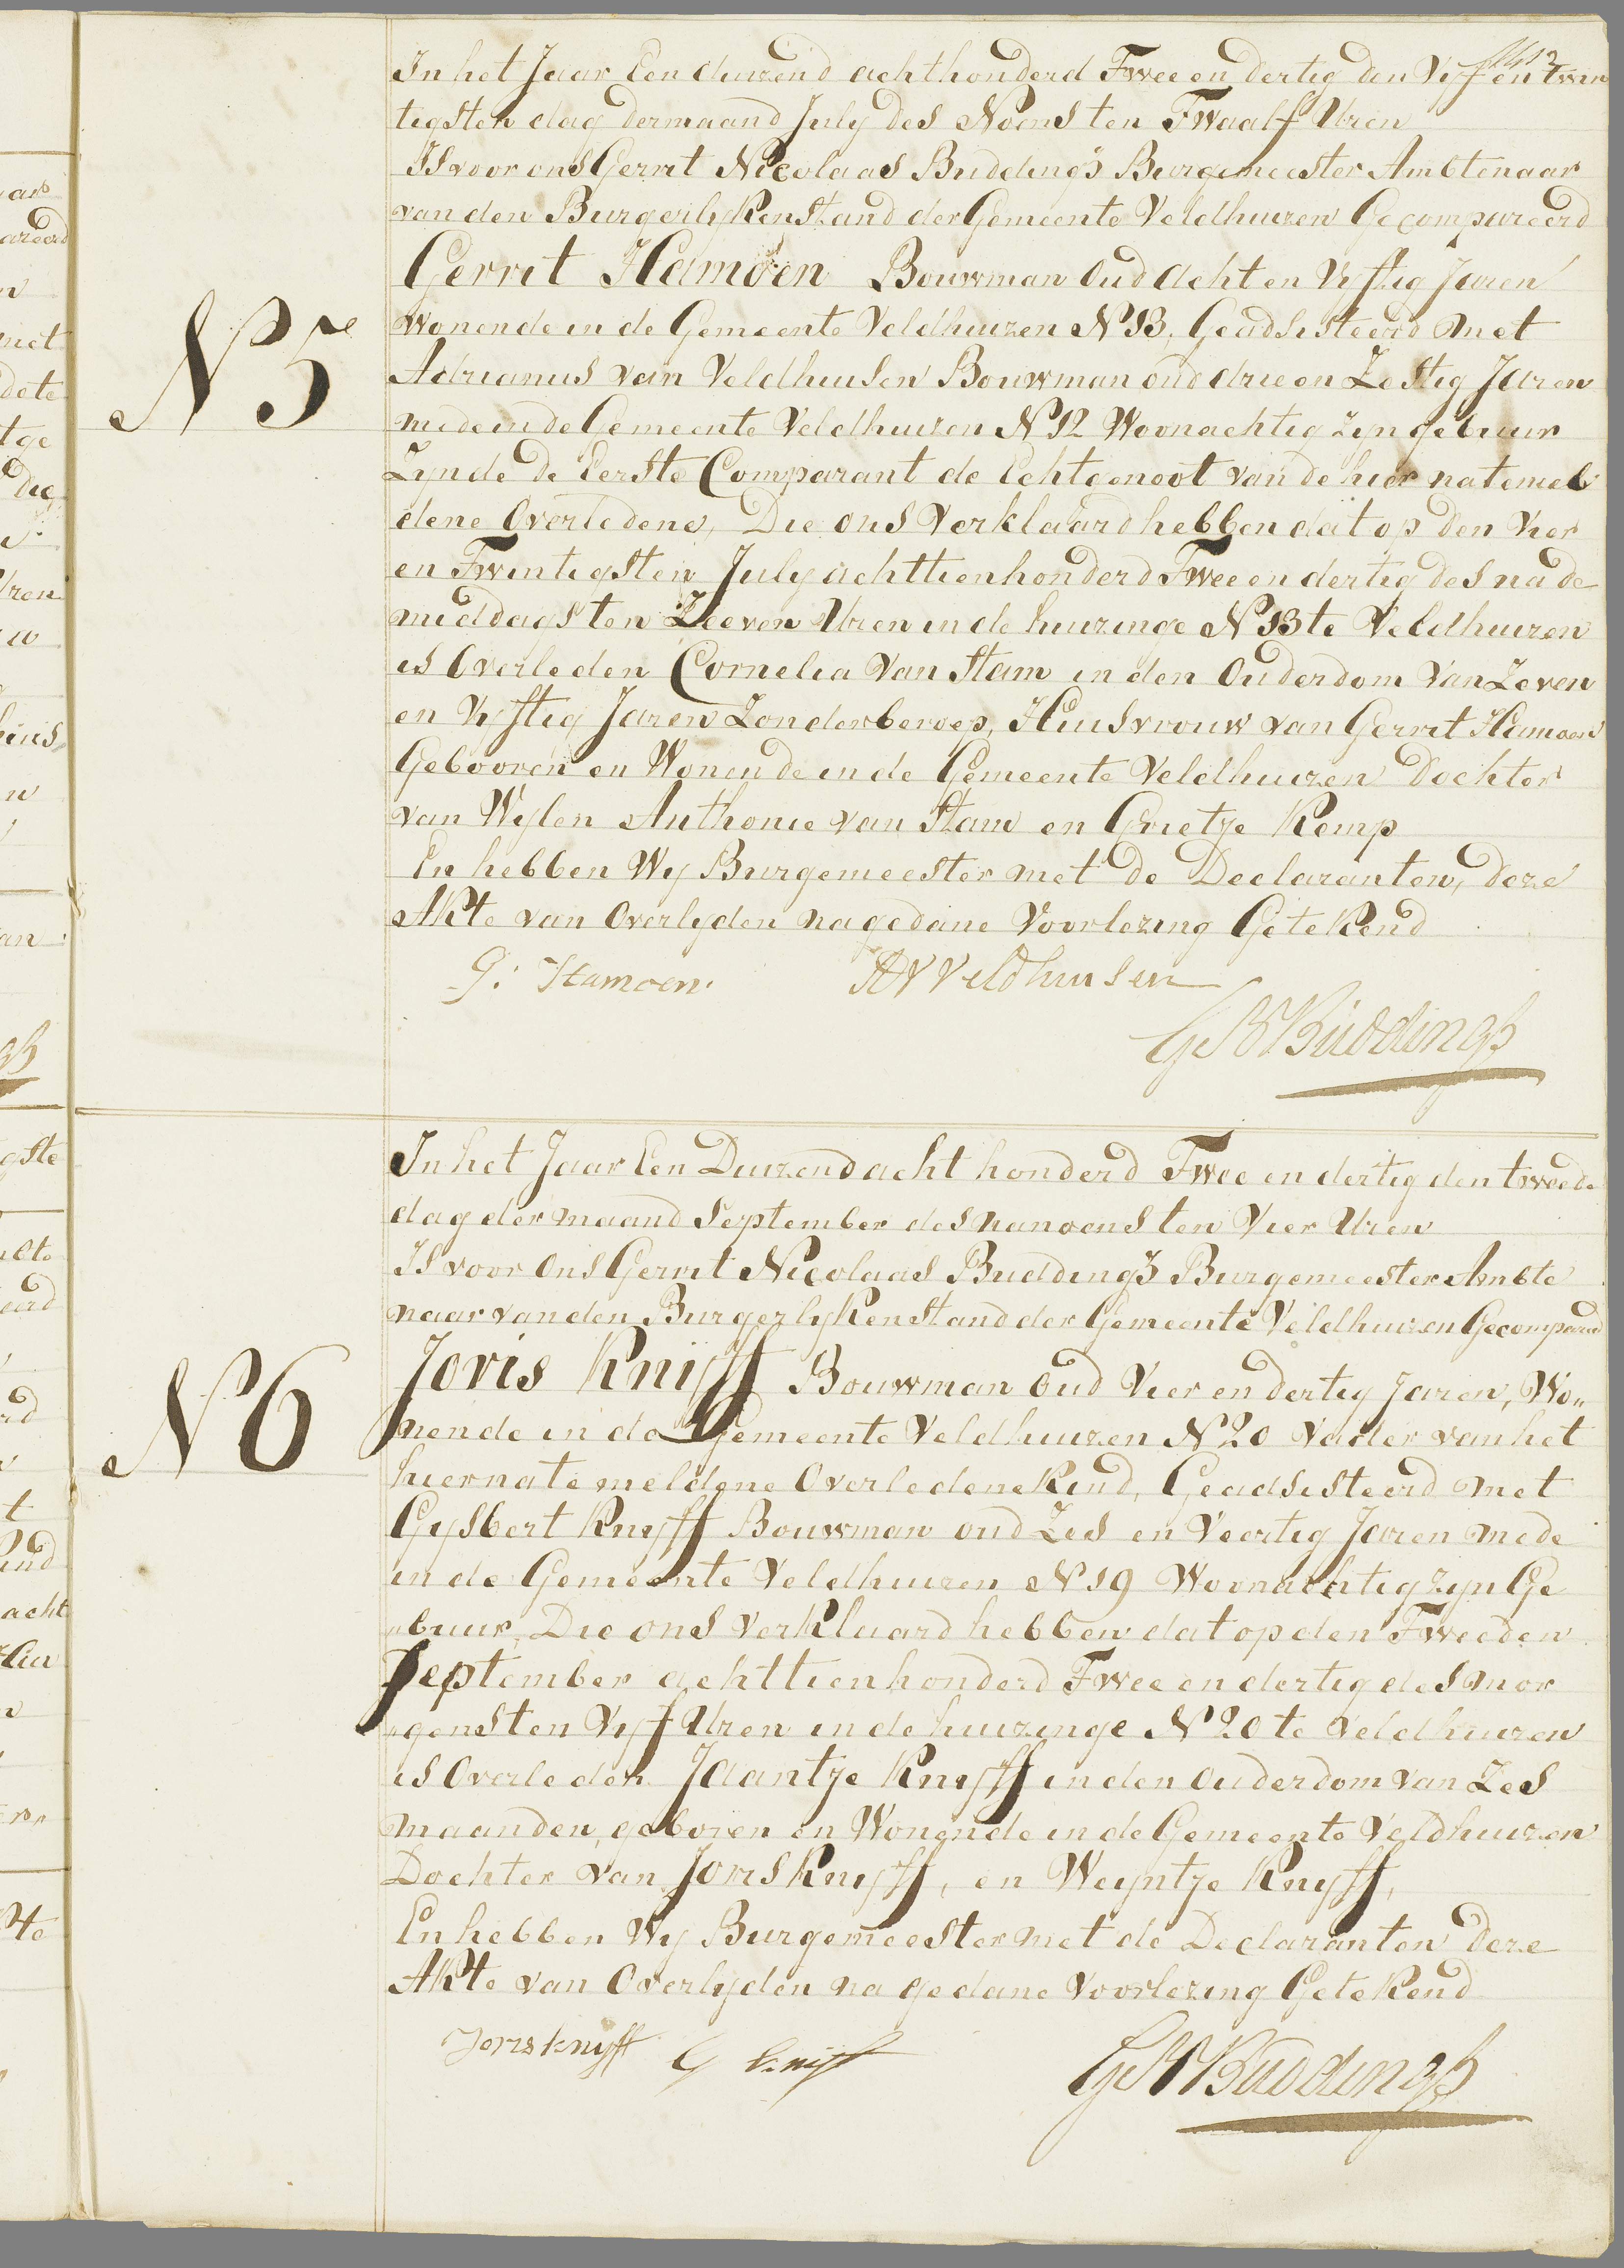 In het Jaar Een duizend achthonderd Twee en dertig den Vijf en twin
tigsten dag dermaand July des Noens ten Twaalf Uren
Is voor ons Gerrit Nicolaas Buddingh Burgemeester Ambtenaar
van den Burgerlyken Stand der Gemeente Veldhuizen Gecompareerd
Gerrit Hamoen Bouwman oud acht en Vyftig Jaren
N 5
wonende in de Gemeente Veldhuizen N 13, Geadsisteerd met
Adrianus van Veldhuisen Bouwman oud drie en Zestig Jaren
mede in de Gemeente Veldhuizen N 12 Woonachtig zyn gebuur
Zynde de Eerste Comparant de Echtgenoot van de hier natemel
dene Overledene, Die ons Verklaard hebben dat op den Vier
en Twintigsten July achttienhonderd Twee en dertig des nade
middags ten Zeeven Uren in de huizinge N 13 te Veldhuizen
is Overleden Cornelia Van Stam in den Ouderdom Van Zeven
en Vyftig Jaren Zonder beroep, Huisvrouw van Gerrit Hamoen
Gebooren en Wonende in de Gemeente Veldhuizen Dochter
van Wylen Anthonie van Stam en Grietje Kemp
En hebben Wy Burgemeester met de Declaranten, deze
Akte van Overlyden na gedane Voorlezing Getekend
G: Hamoen. AV Veldhuisen
GN Buddingh
In het Jaar Een Duizend acht honderd Twee en dertig den tweede
dag der maand September des nanoens ten Vier Uren
Is voor ons Gerrit Nicolaas Buddingh Burgemeester Ambte
naar van den Burgerlyken Stand der Gemeente Veldhuizen Gecompareerd
Joris Knijff Bouwman oud Vier en dertig Jaren, Wo„
N 6
nende in de Gemeente Veldhuizen N 20 Vader van het
hiernatemeldene Overledene Kind, Geadsisteerd met
Gysbert Knyff Bouwman oud Zes en Veertig Jaren mede
in de Gemeente Veldhuizen N 19 Woonachtig zyn Ge
„buur, Die ons Verklaard hebben dat op den Tweeden
September achttienhonderd Twee en dertig des mor
„gens ten Vyf Uren in de huizinge N 20 te Veldhuizen
is Overleden Jaantje Knyff in den Ouderdom van Zes
maanden, geboren en Wonende in de Gemeente Veldhuizen
Dochter van Joris Knyff, en Weyntje Knyff,
En hebben Wy Burgemeester met de Declaranten deze
Akte van Overlyden na gedane Voorlezing Getekend
Joris Knyff G Knijff
GN Buddingh